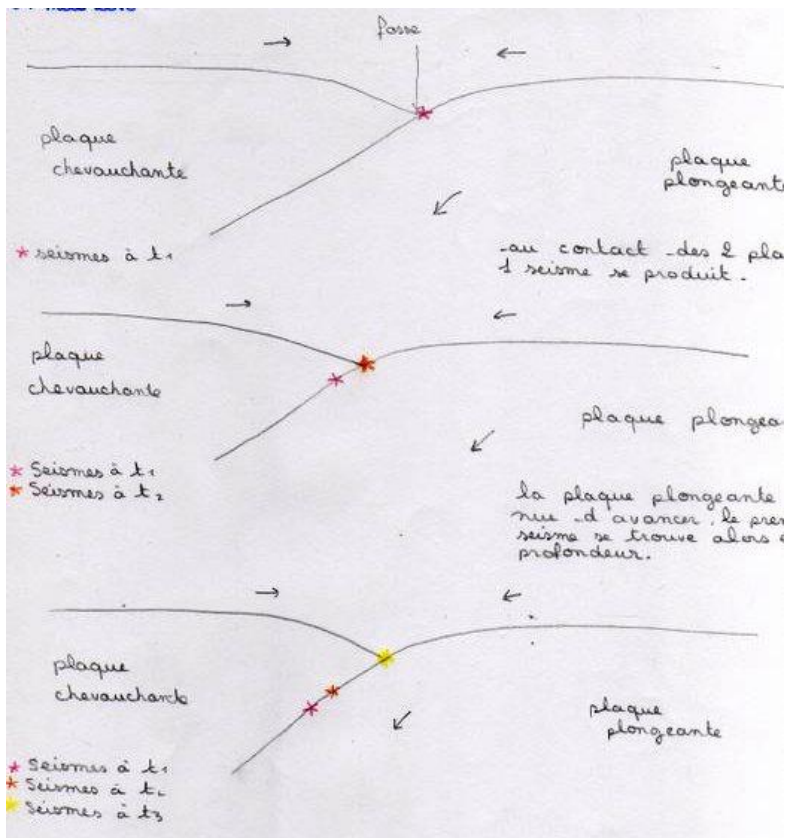 fosse
plaque
chevauchante
plaque
plongeante
* seismes à t1
-au contact des 2 pla
1 seisme se produit.
plaque
chevauchante
plaque plongea
* Seismes à t1
* Seismes à t2
la plaque plongeante
nue d'avancer. le prem
seisme se trouve alors e
profondeur.
plaque
chevauchante
plaque
plongeante
* Seismes à t1
* Seismes à t2
* Séismes à t3